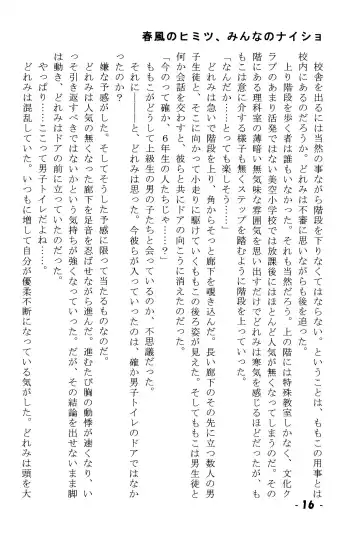 春風のヒミツ、みんなのナイショ
校舎を出るには当然の事ながら階段を下りなくてはならない。ということは、ももこの用事とは
校内にあるのだろうか。どれみは不審に思いながらも後を追った。
上り階段を歩く者は誰もいなかった。それも当然だろう。上の階には特殊教室しかなく、文化ク
ラブのあまり活発ではない美空小学校では放課後にはほとんど人気が無くなってしまうのだ。その
階にある理科室の薄暗い無気味な雰囲気を思い出すだけでどれみは寒気を感じるほどだったが、も
もこは意に介する様子も無くステップを踏むように階段を上っていった。
「なんだか……とっても楽しそう……」
どれみは急いで階段を上り、角からそっと廊下を覗き込んだ。長い廊下のその先に立つ数人の男
子生徒と、そこに向かって小走りに駆けていくももこの後ろ姿が見えた。そしてももこは男生徒と
何か会話を交わすと、彼らと共にドアの向こうに消えたのだった。
「今のって確か、6年生の人たちじゃ……?」
ももこがどうして上級生の男の子たちと会っているのか、不思議だった。
それに――と、どれみは思った。今彼らが入っていったのは、確か男子トイレのドアではなか
ったのか?
嫌な予感がした。そしてそうした予感に限って当たるものなのだ。
どれみは人気の無くなった廊下を足音を忍ばせながら進んだ。進むたび胸の動悸が速くなり、い
っそ引き返すべきではないかという気持ちが強くなっていった。だが、その結論を出せないまま脚
は動き、どれみはドアの前に立っていたのだった。
やっぱり……ここって男子トイレだよね……。
どれみは混乱していた。いつもに増して自分が優柔不断になっている気がした。どれみは頭を大
- 16 -